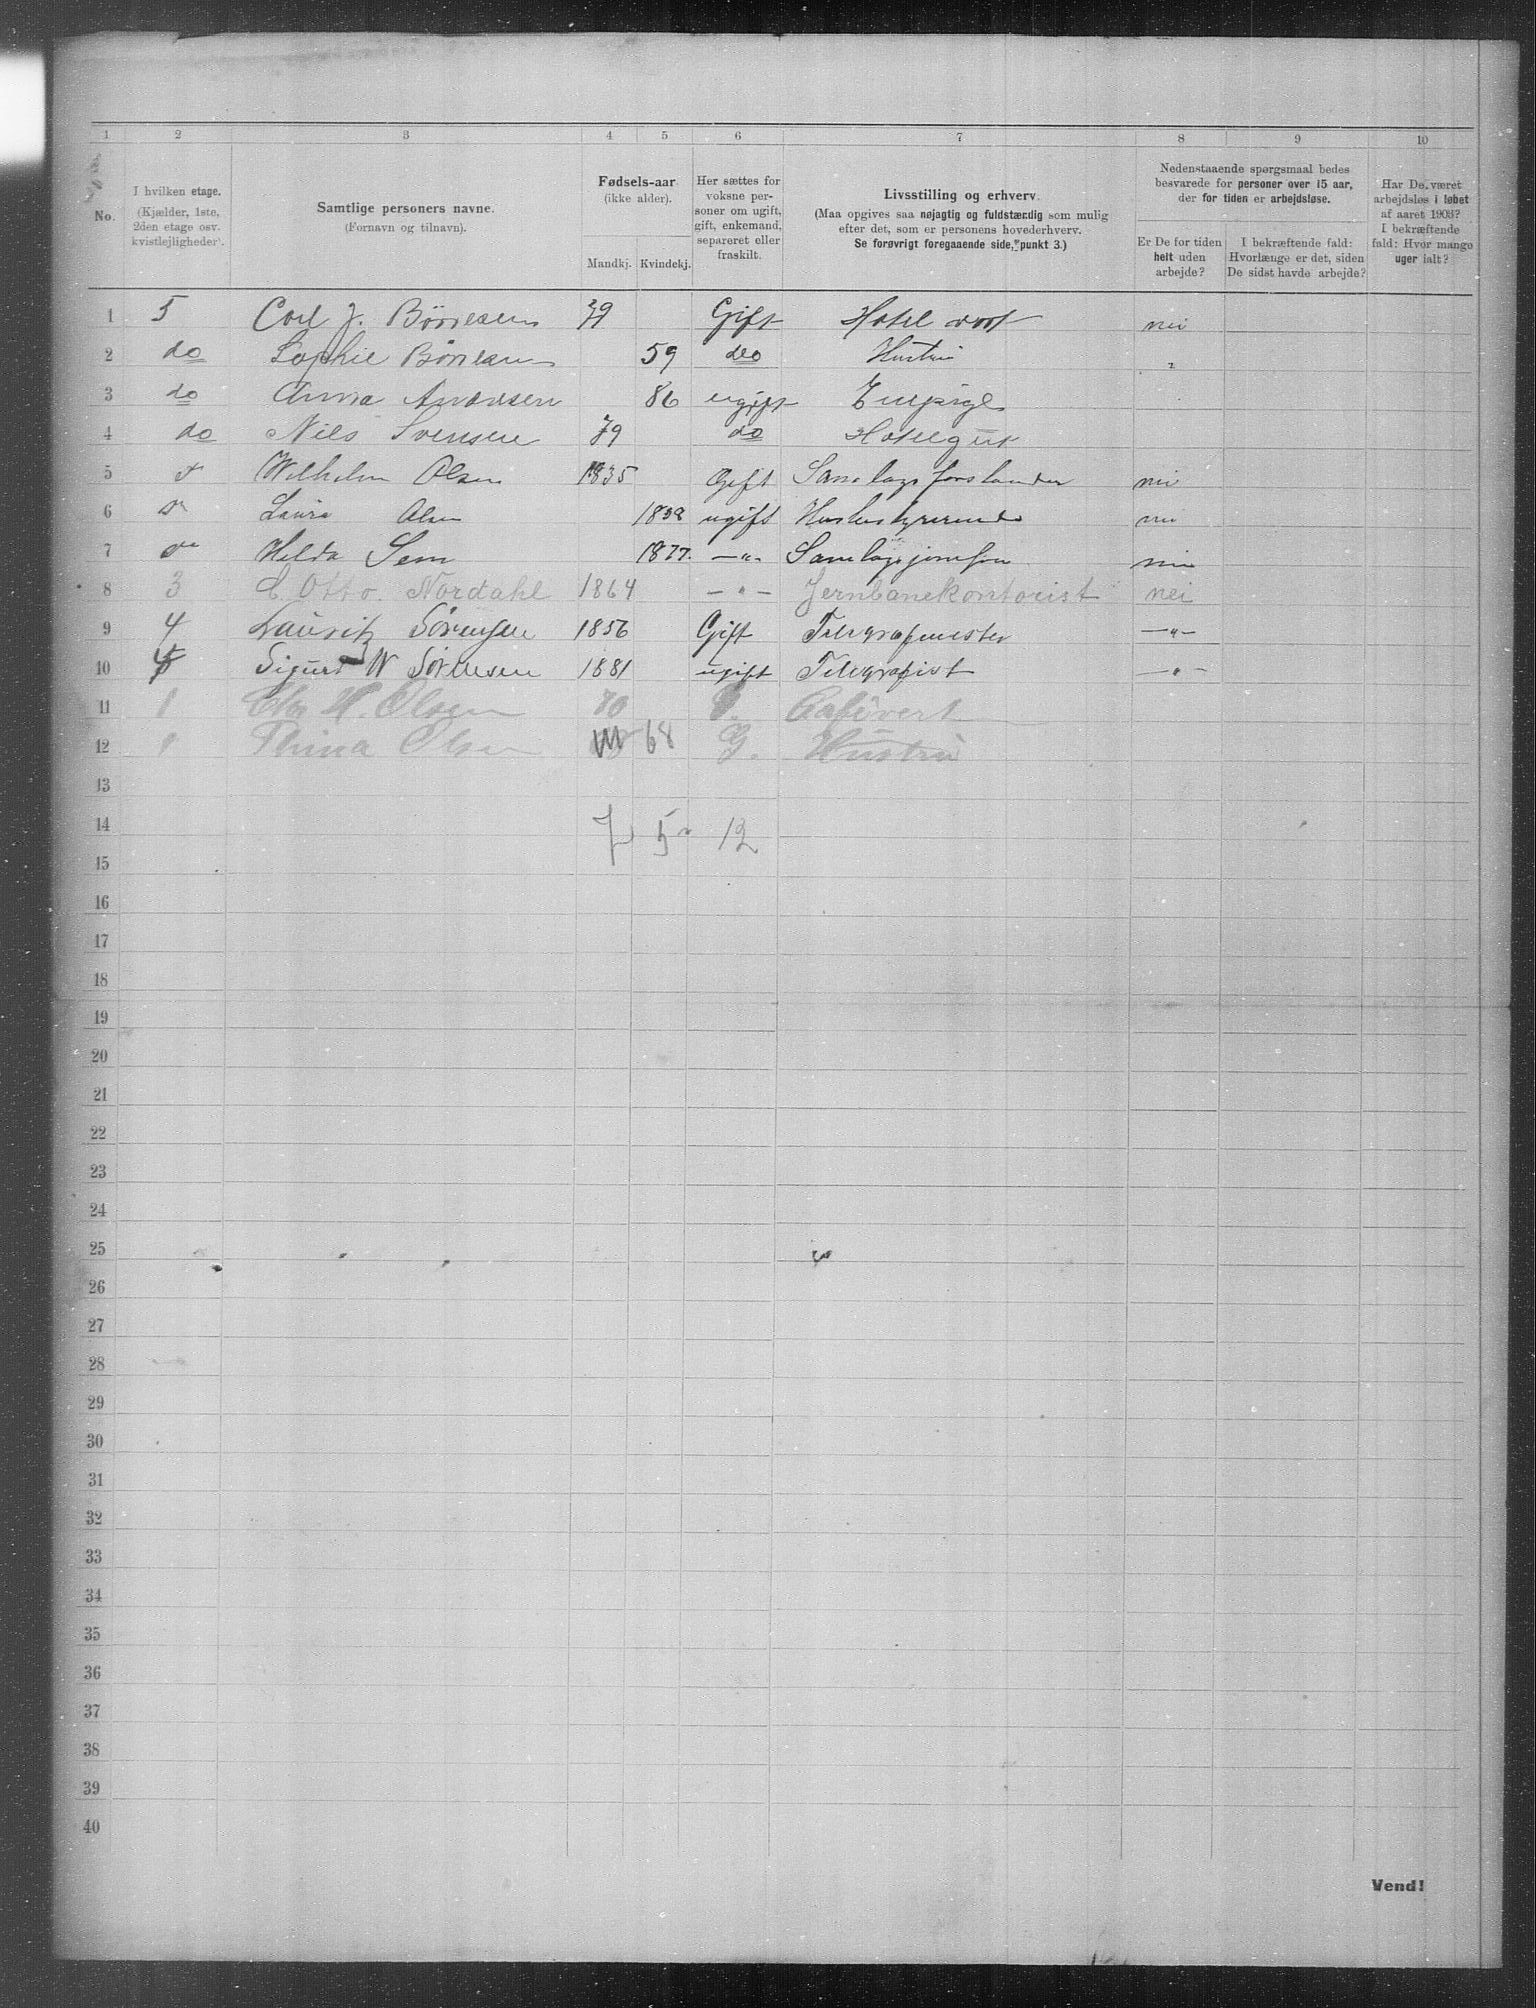 1 2 3 4 5 6 7 8 9 10
No.
I hvilken etage.
(Kjælder, 1ste,
2den etage osv.
kvistlejligheder).
Samtlige personers navne.
(Fornavn og tilnavn).
Fødsels-aar
(ikke alder).
Mandkj. Kvindekj.
Her sættes for
voksne per-
soner om ugift,
gift, enkemand,
separeret eller
fraskilt.
Livsstilling og erhverv.
(Maa opgives saa nøjagtig og fuldstændig som mulig
efter det, som er personens hovederhverv.
Se forøvrigt foregaaende side, punkt 3.)
Nedenstaaende spørgsmaal bedes
besvarede for personer over 15 aar,
der for tiden er arbejdsløse.
Er De for tiden
helt uden
arbejde?
I bekræftende fald:
Hvorlænge er det, siden
De sidst havde arbejde?
Har De været
arbejdsløs i løbet
af aaret 1903?
I bekræftende
fald: Hvor mange
uger ialt?
1 5 Carl J. Børresen Gift Hotel vært nei
2 do Sophie Børresen 59 do Hustru
3 do Anna Andersen 86 ugift
4 do Nils Svensen 79 do Hotelgut
5 Wilhelm Olsen 1835 Gift Samlagsforstander nei
6 Laura Olsen ugift Husbestyrerinde nei
7 Hilda Sem 1877 —"— Samlagsjomfru nei
8 3 C. Otto. Nordahl 1864 —"— Jernbanekontorist nei
9 4 Lauritz Sørensen 1856 Gift Telegrafmester —"—
10 Sigurd W Sørensen 1881 ugift Telegrafist —"—
11 1 Chr H. Olsen 70 G. Cafevert
12 Thina Olsen 68 G. Hustru
13
14 7 5 12
15
16
17
18
19
20
21
22
23
24
25
26
27
28
29
30
31
32
33
34
35
36
37
38
39
40
Vend!